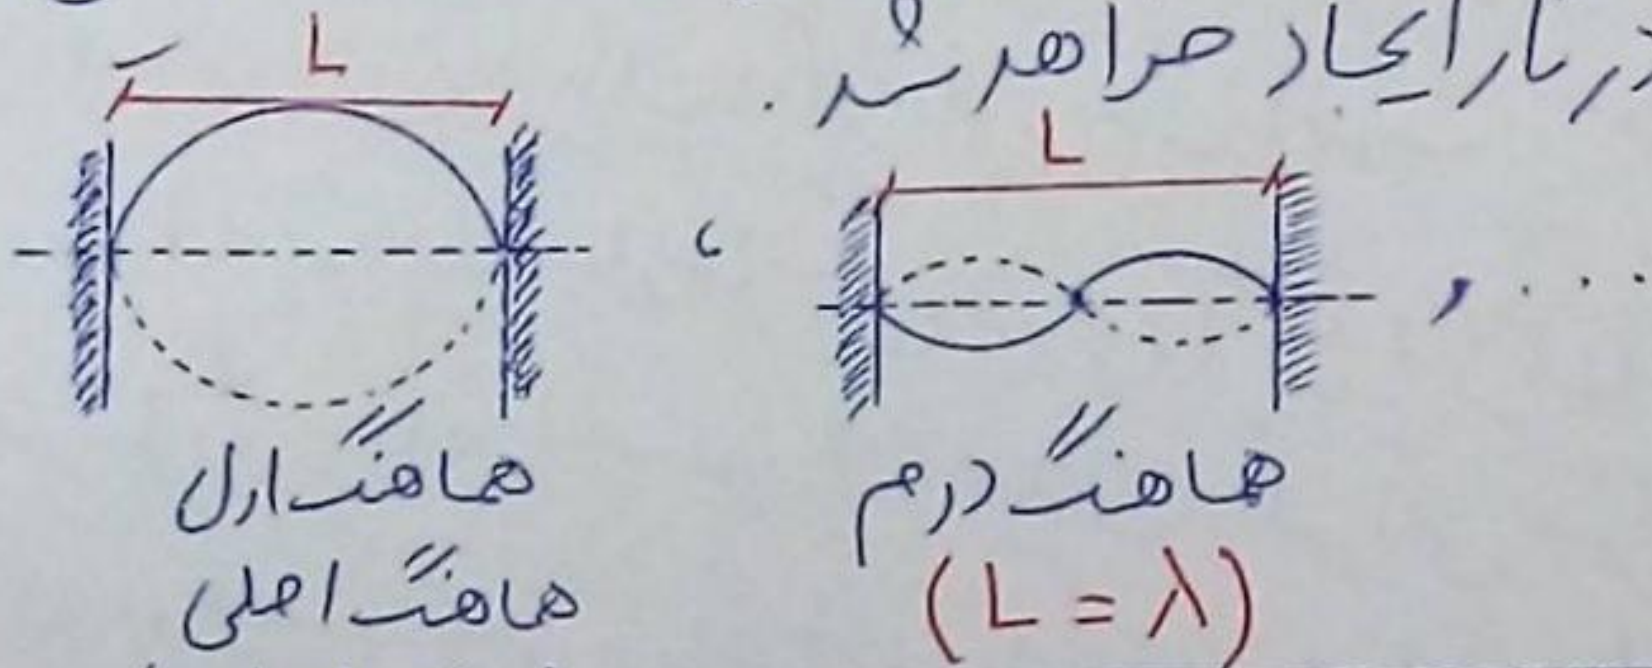 در تار ایجاد خواهد شد.
L
L
هماهنگ اول
هماهنگ اصلی
هماهنگ دوم
(L = λ)